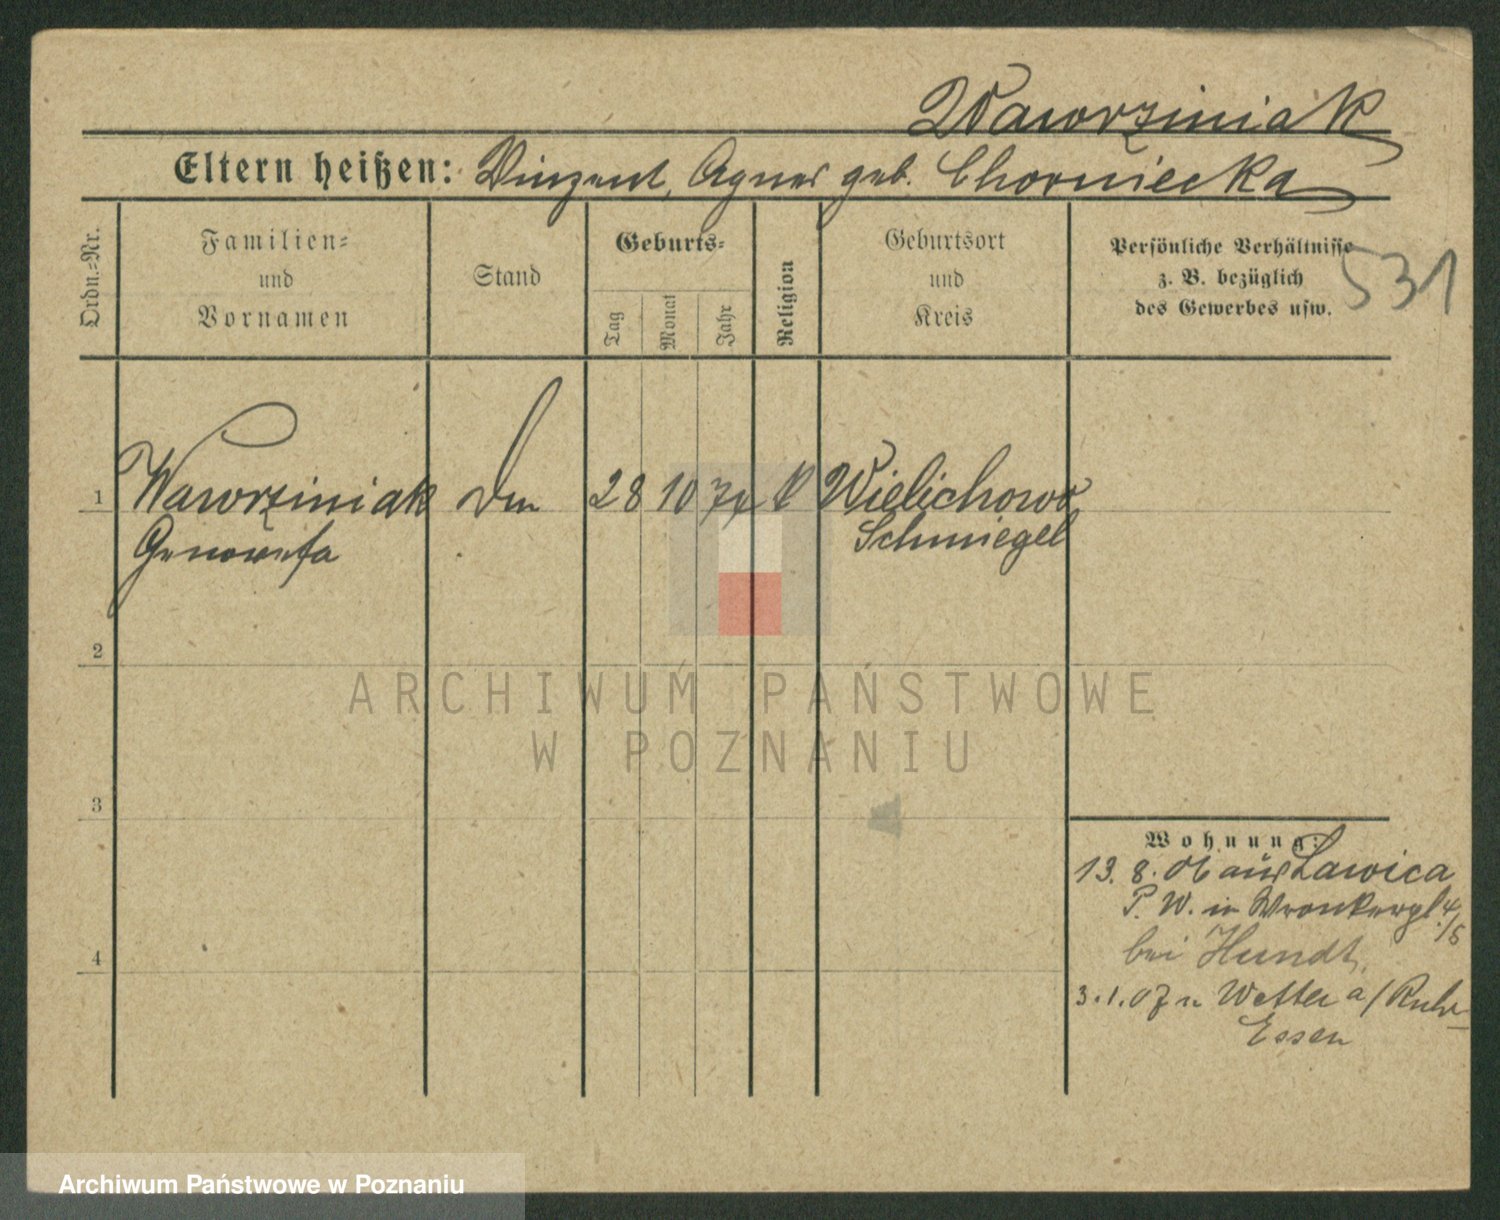 Wawrziniak
Eltern heißen: Vinzent, Agnes geb. Chorniecka
Ordn.=Nr.
Familien=
und
Vornamen
Stand
Geburts=
Tag
Monat
Jahr
Religion
Geburtsort
und
Kreis
Persönliche Verhältnisse
z. B. bezüglich
des Gewerbes usw.
531
1 Wawrziniak 28 10 74 k Wielichowo
Genowefa Schmiegel
2
3
4
Wohnung:
13. 8. 06 aus Lawica
P. W. in Wronkerpl. 4/5
bei Hundt.
3. 1. 07 n Wetter a/Ruhr
Essen
ARCHIWUM PAŃSTWOWE
W POZNANIU
Archiwum Państwowe w Poznaniu